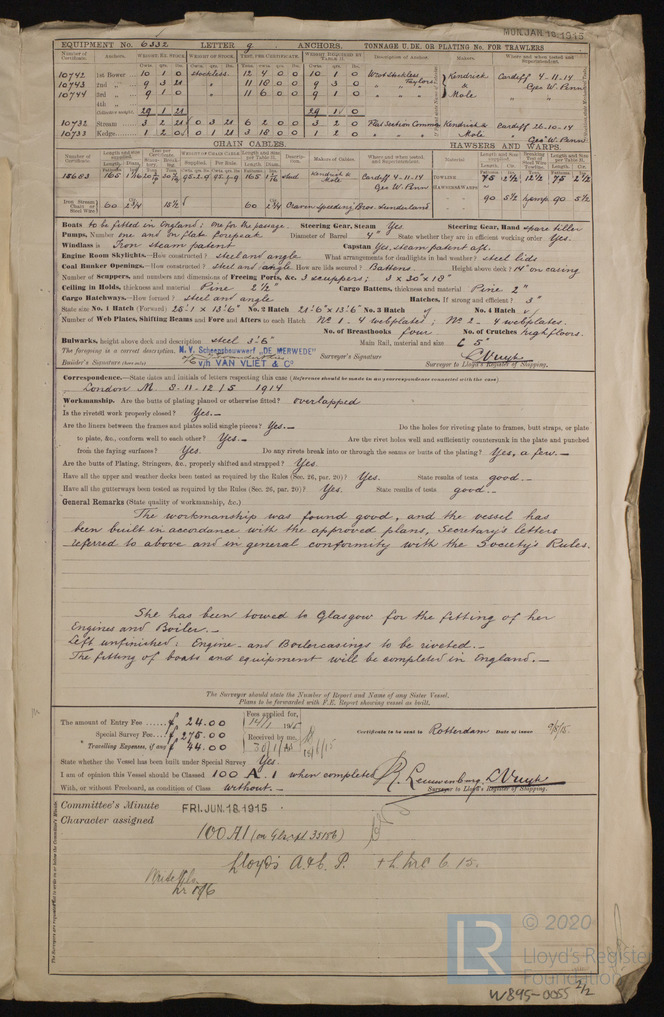 MON. JAN. 18. 1915
EQUIPMENT No. 6332 LETTER g. ANCHORS. TONNAGE U. DK. OR PLATING No. FOR TRAWLERS
Number of Certificate. Anchors. WEIGHT, EX. STOCK. WEIGHT OF STOCK. TEST, PER CERTIFICATE. WEIGHT REQUIRED BY TABLE 31. Description of Anchor. Makers. Where and when tested and Superintendent.
10742 1st Bower 10 1 0 stockless 12 4 0 0 10 1 0 Kendrick Cardiff 4-11-14
10743 2nd " 9 3 21 " 11 18 0 0 9 3 0 & Geo W. Penn
10744 3rd " 9 1 0 " 11 6 0 0 9 1 0 Mole
4th "
29 1 21 29 1 0
10732 Stream 3 2 21 0 3 21 6 2 0 0 3 2 0 Kendrick & Cardiff 26-10-14
10733 Kedge 1 2 0 0 1 21 3 18 0 0 1 2 0 Mole Geo W. Penn
CHAIN CABLES. HAWSERS AND WARPS.
15683 165 1 9/16 165 1 9/16 stud Kendrick & Mole Cardiff 4-11-14 75 12½ 75 2½
Geo W. Penn
Iron Stream Chain or Steel Wire 60 2¾ 15½ 60 2¾ Craven Speeding Bros. Sunderland 90 5½ hemp 90 5½
Boats to be fitted in England; one for the passage. Steering Gear, Steam Yes. Steering Gear, Hand spare tiller
Pumps, Number one and on plate forepeak Diameter of Barrel 4" State whether they are in efficient working order Yes.
Windlass is Iron steam patent Capstan Yes, steam patent aft.
Engine Room Skylights.—How constructed? steel and angle What arrangements for deadlights in bad weather? steel lids
Coal Bunker Openings.—How constructed? steel and angle How are lids secured? Battens. Height above deck? 14" on casing
Number of Scuppers, and numbers and dimensions of Freeing Ports, &c. 3 scuppers; 3 x 20" x 18"
Ceiling in Holds, thickness and material Pine 2½" Cargo Battens, thickness and material Pine 2"
Cargo Hatchways.—How formed? steel and angle Hatches, If strong and efficient? 3"
State size No. 1 Hatch (Forward) 25'1 x 13'6" No. 2 Hatch 21'6" x 13'6" No. 3 Hatch No. 4 Hatch
Number of Web Plates, Shifting Beams and Fore and Afters to each Hatch No 1. 4 webplates; No 2. 4 webplates.
No. of Breasthooks four. No. of Crutches high floors.
Bulwarks, height above deck and description steel 3'6" Main Rail, material and size 5"
The foregoing is a correct description. N. V. Scheepsbouwwerf „DE MERWEDE"
Builder's Signature v/h VAN VLIET & Co Surveyor's Signature L Vuyk Surveyor to Lloyd's Register of Shipping.
Correspondence.—State dates and initials of letters respecting this case (Reference should be made to any correspondence connected with this case)
London M. 3-11-12/5 1914
Workmanship. Are the butts of plating planed or otherwise fitted? overlapped
Is the riveted work properly closed? Yes.—
Are the liners between the frames and plates solid single pieces? Yes.— Do the holes for riveting plate to frames, butt straps, or plate
to plate, &c., conform well to each other? Yes.— Are the rivet holes well and sufficiently countersunk in the plate and punched
from the faying surfaces? Yes. Do any rivets break into or through the seams or butts of the plating? Yes, a few.—
Are the butts of Plating, Stringers, &c., properly shifted and strapped? Yes.
Have all the upper and weather decks been tested as required by the Rules (Sec. 26, par. 20)? Yes. State results of tests good.—
Have all the gutterways been tested as required by the Rules (Sec. 26, par. 20)? Yes. State results of tests good.—
General Remarks (State quality of workmanship, &c.)
The workmanship was found good, and the vessel has
been built in accordance with the approved plans, Secretary's letters
referred to above and in general conformity with the Society's Rules.
She has been towed to Glasgow for the fitting of her
Engines and Boiler.—
Left unfinished: Engine- and Boilercasings to be riveted.—
The fitting of boats and equipment will be completed in England.—
The Surveyor should state the Number of Report and Name of any Sister Vessel.
Plans to be forwarded with F.E. Report showing vessel as built.
The amount of Entry Fee ...... £ 24.00 Fees applied for,
Special Survey Fee... £ 275.00
Travelling Expenses, if any £ 44.00 Received by me,
Certificate to be sent to Rotterdam Date of issue 9/7/15.
State whether the Vessel has been built under Special Survey Yes.
I am of opinion this Vessel should be Classed 100 A.1 when completed R. Leeuwenburg. L Vuyk
With, or without Freeboard, as condition of Class without.— Surveyor to Lloyd's Register of Shipping.
Committee's Minute FRI. JUN. 18. 1915
Character assigned
100A1 (on Gls rpt 35156)
Lloyd's A & C. P. + LMC 6.15.
© 2020
LR Lloyd's Register
Foundation
W895-0055 2/2